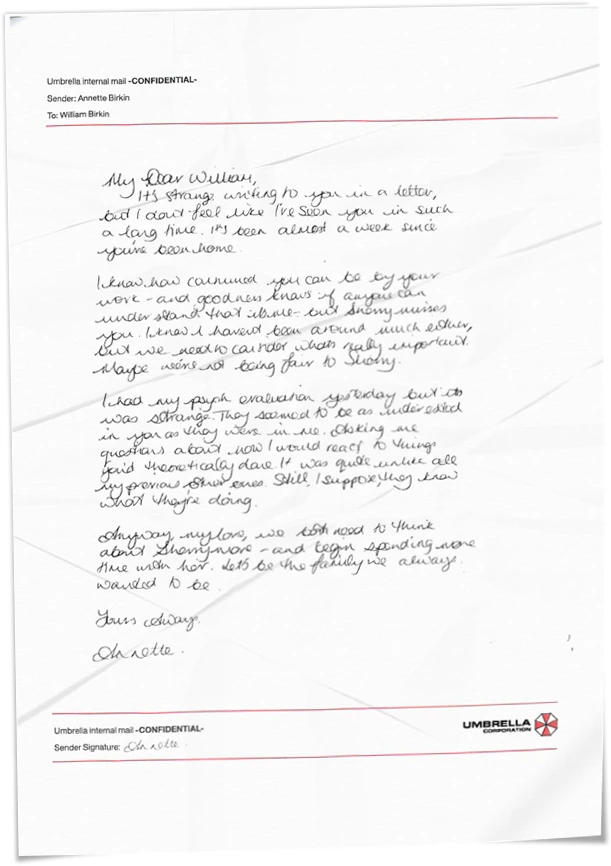 Umbrella internal mail -CONFIDENTIAL-
Sender: Annette Birkin
To: William Birkin
My Dear William,
It's strange writing to you in a letter,
but I don't feel like I've seen you in such
a long time. It's been almost a week since
you've been home.
I know how consumed you can be by your
work - and goodness knows if anyone can
understand that it's me - but Sherry misses
you. I know I haven't been around much either,
but we need to consider what's really important.
Maybe we're not being fair to Sherry.
I had my psych evaluation yesterday but it
was strange. They seemed to be as interested
in you as they were in me. Asking me
questions about how I would react to things
you'd theoretically done. It was quite unlike all
my previous other ones. Still, I suppose they know
what they're doing.
Anyway, my love, we both need to think
about Sherry more - and begin spending more
time with her. Let's be the family we always
wanted to be.
Yours Always.
Annette.
Umbrella internal mail -CONFIDENTIAL-
Sender Signature: Annette.
UMBRELLA
CORPORATION